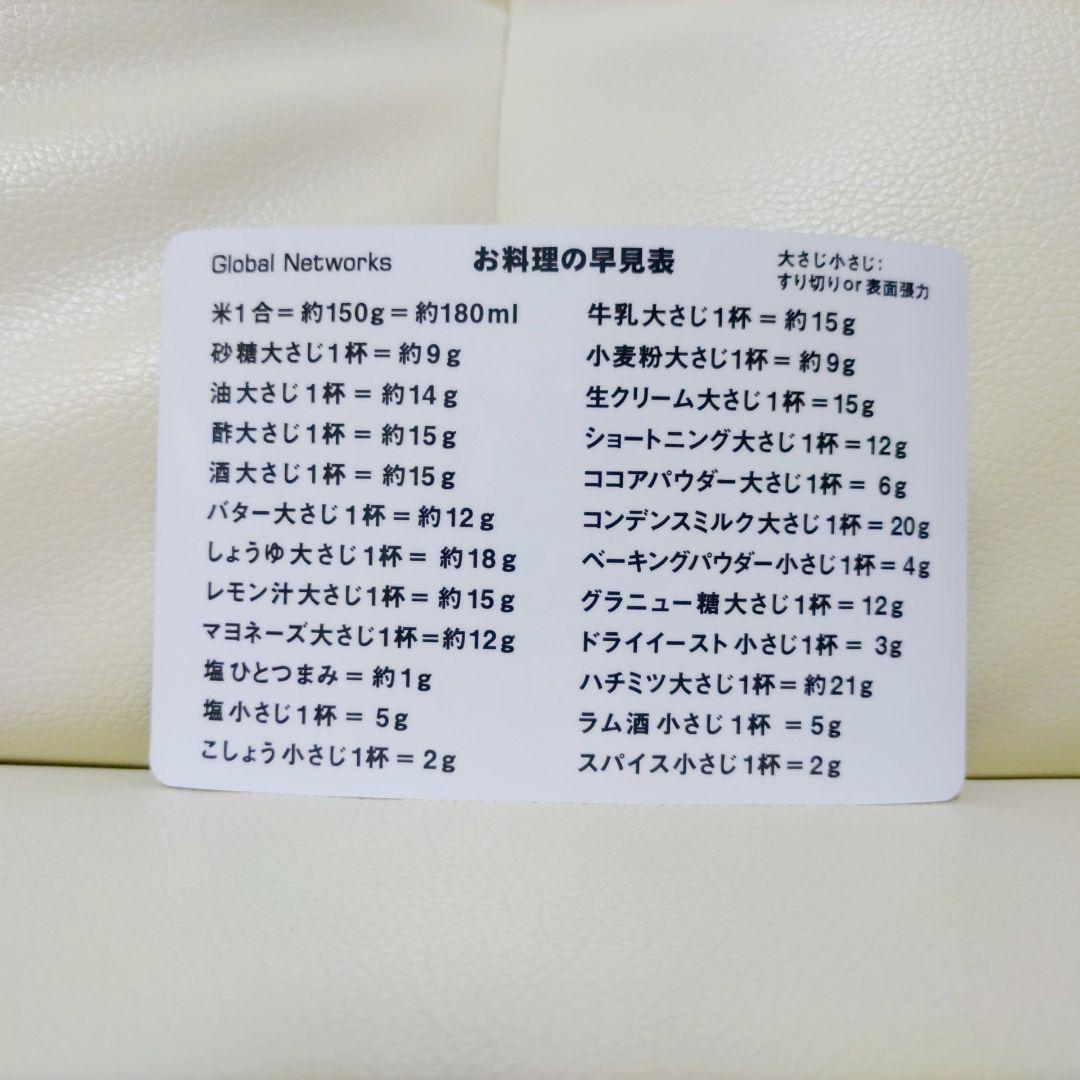 Global Networks
お料理の早見表
大さじ小さじ:
すり切りor表面張力
米1合=約150g=約180ml
砂糖大さじ1杯=約9g
油大さじ1杯=約14g
酢大さじ1杯=約15g
酒大さじ1杯=約15g
バター大さじ1杯=約12g
しょうゆ大さじ1杯=約18g
レモン汁大さじ1杯=約15g
マヨネーズ大さじ1杯=約12g
塩ひとつまみ=約1g
塩小さじ1杯=5g
こしょう小さじ1杯=2g
牛乳大さじ1杯=約15g
小麦粉大さじ1杯=約9g
生クリーム大さじ1杯=15g
ショートニング大さじ1杯=12g
ココアパウダー大さじ1杯=6g
コンデンスミルク大さじ1杯=20g
ベーキングパウダー小さじ1杯=4g
グラニュー糖大さじ1杯=12g
ドライイースト小さじ1杯=3g
ハチミツ大さじ1杯=約21g
ラム酒小さじ1杯=5g
スパイス小さじ1杯=2g